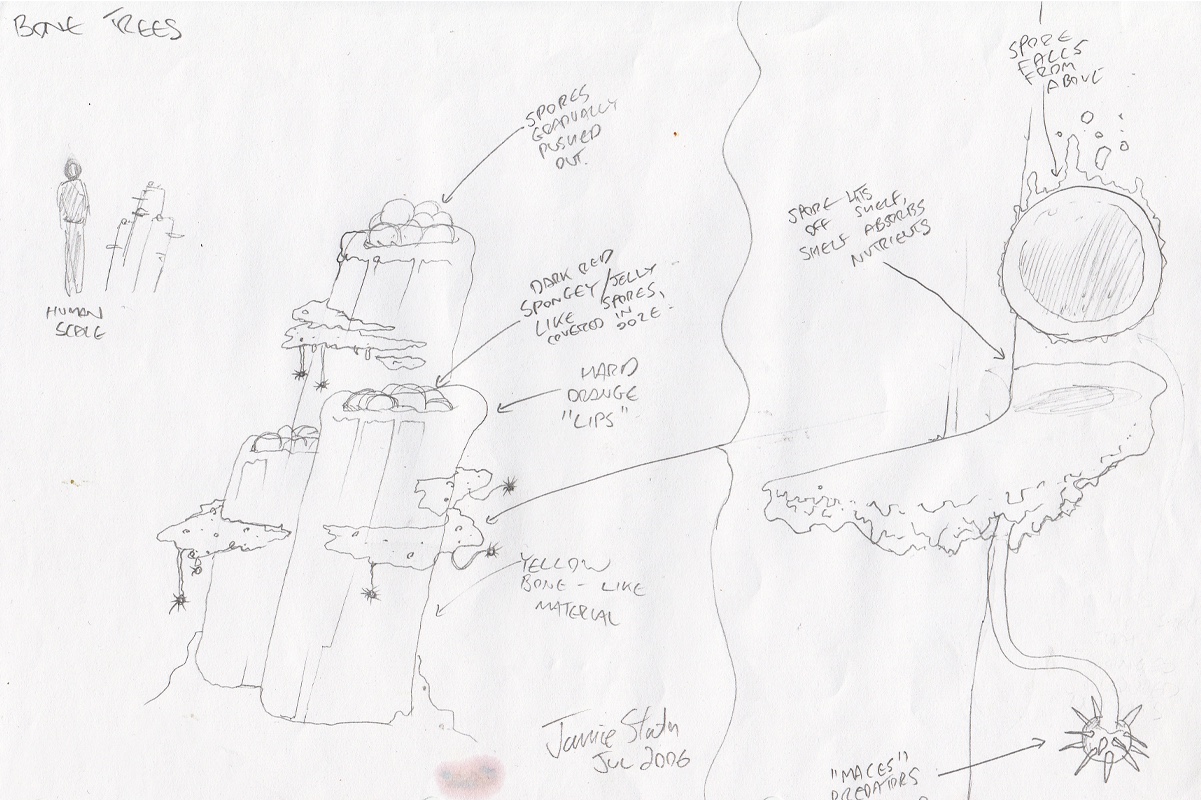 BONE TREES
HUMAN
SCALE
SPORES
GRADUALLY
PUSHED
OUT.
DARK RED
SPONGEY/JELLY
LIKE SPORES,
COVERED IN
OOZE.
HARD
ORANGE
"LIPS"
YELLOW
BONE-LIKE
MATERIAL
Jamie
JUL 2006
SPORE
FALLS
FROM
ABOVE
SPORE HITS
OFF SHELF,
SHELF ABSORBS
NUTRIENTS
"MACES"
PREDATORS